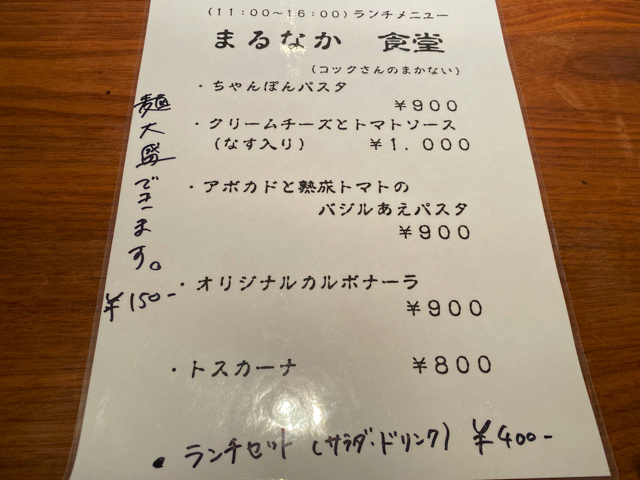 (11:00~16:00)ランチメニュー
まるなか 食堂
(コックさんのまかない)
・ちゃんぽんパスタ
¥900
・クリームチーズとトマトソース
(なす入り) ¥1.000
・アボカドと熟成トマトの
バジルあえパスタ
¥900
・オリジナルカルボナーラ
¥900
・トスカーナ ¥800
・ランチセット (サラダ・ドリンク) ¥400-
麺大盛できます。
¥150-